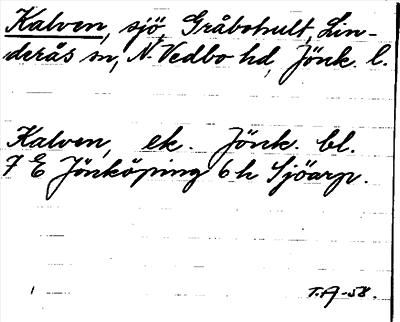 Kalven, sjö, Gråbohult, Lin-
derås sn, N. Vedbo hd, Jönk. l.
Kalven, ek. Jönk. bl.
7 E Jönköping 6 h Sjöarp.
T.A-58.